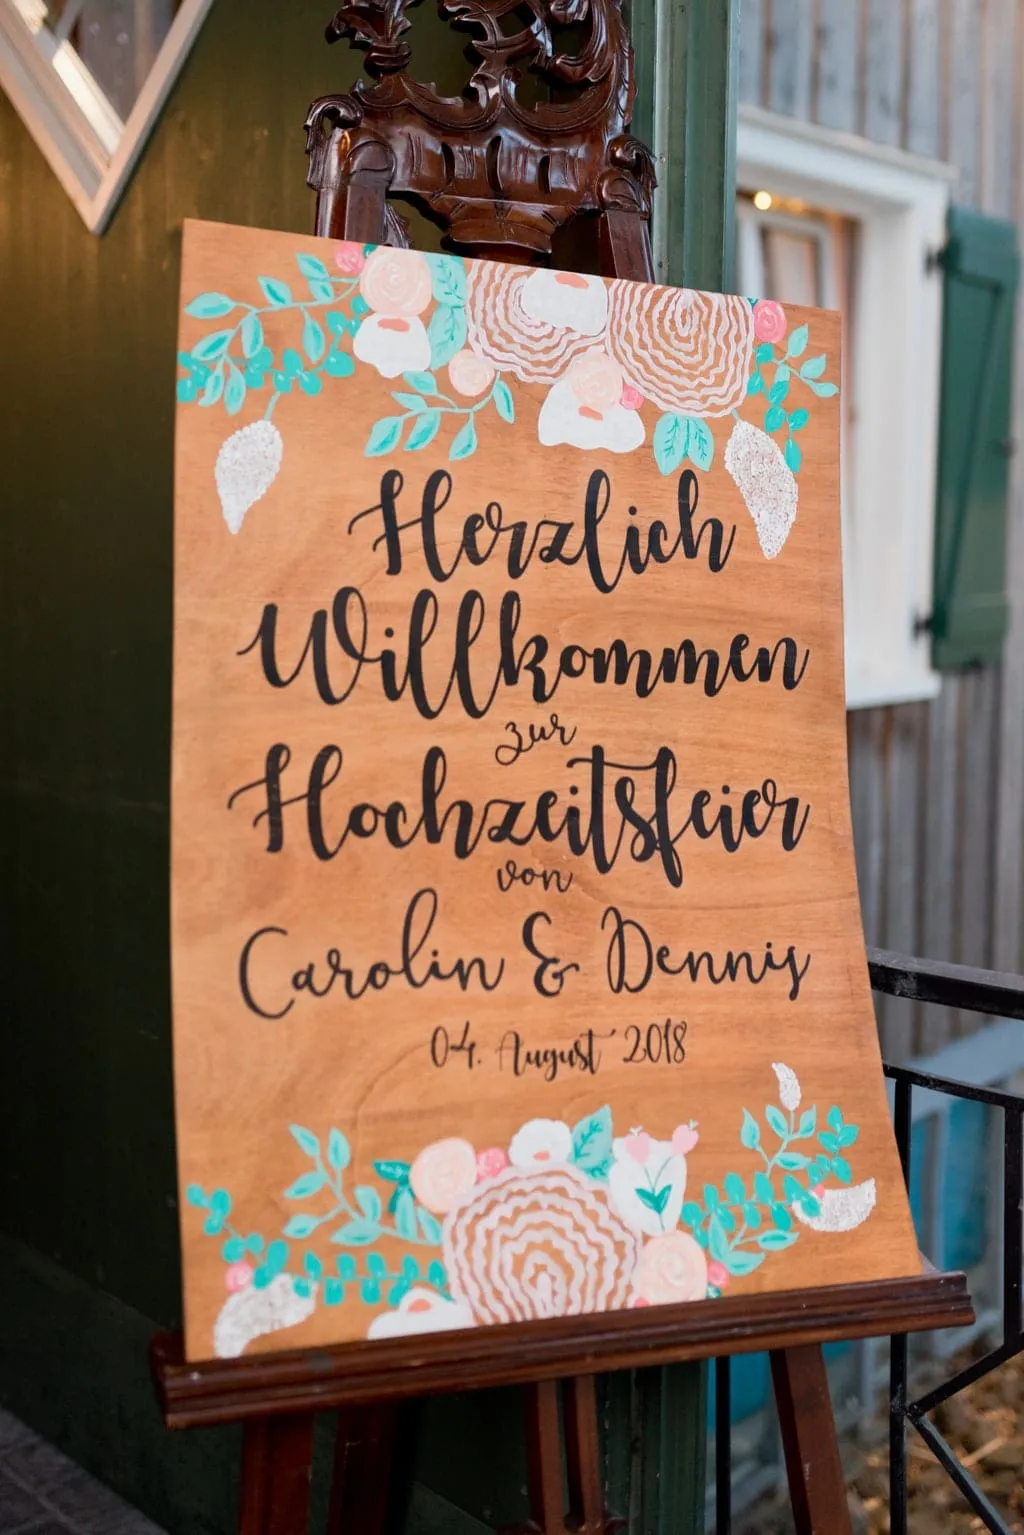 Herzlich
Willkommen
zur
Hochzeitsfeier
von
Carolin & Dennis
04. August 2018